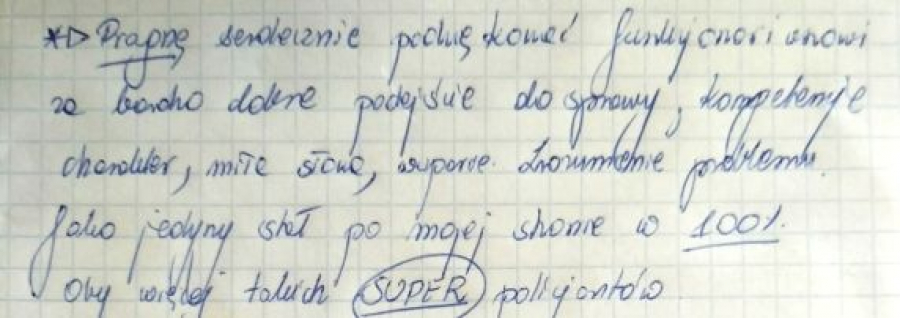 *▷ Pragnę serdecznie podziękować funkcjonariuszowi
za bardzo dobre podejście do sprawy, kompetencje
charakter, miłe słowa, wsparcie. Zrozumienie problemu.
Jako jedyny stał po mojej stronie w 100%.
Oby więcej takich SUPER policjantów